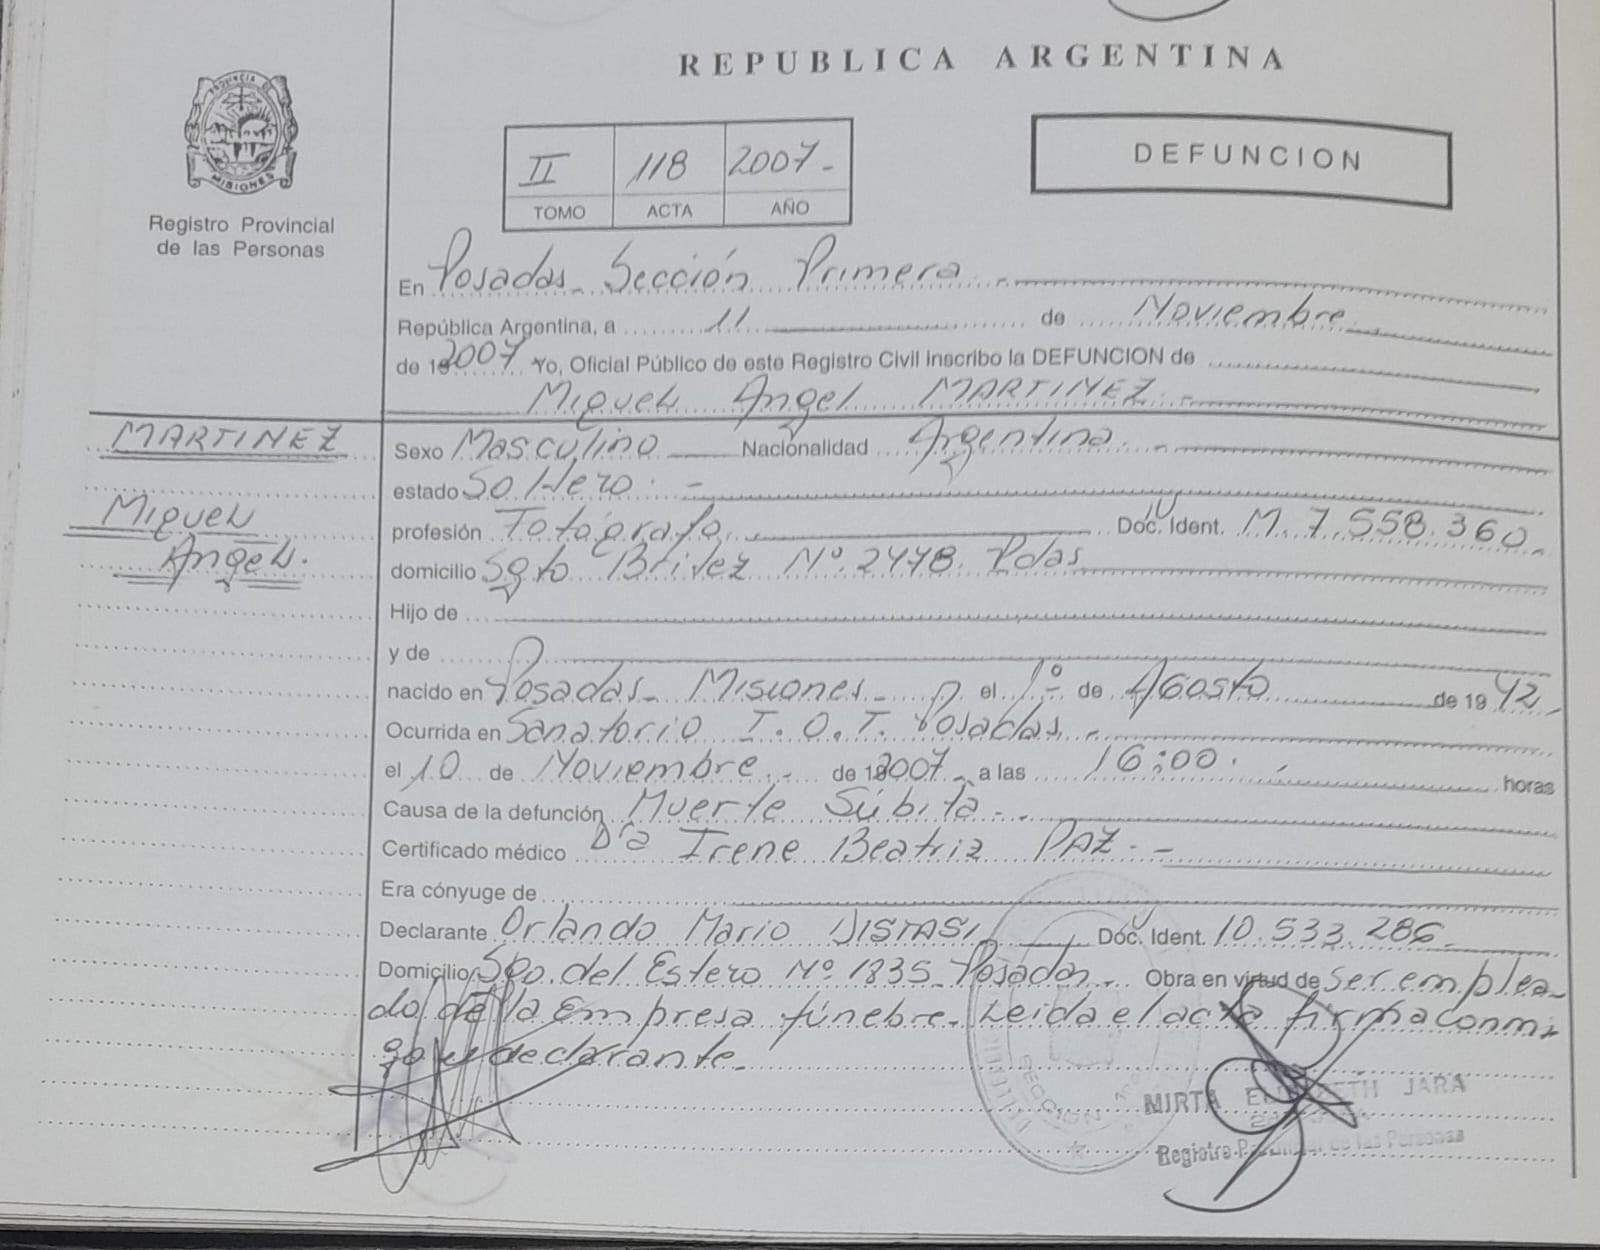 REPUBLICA ARGENTINA
PROVINCIA DE
MISIONES
Registro Provincial
de las Personas
II 118 2007.-
TOMO ACTA AÑO
DEFUNCION
En Posadas_ Sección Primera.-
República Argentina, a 11 de Noviembre
de 19 2007 Yo, Oficial Público de este Registro Civil inscribo la DEFUNCION de
Miguel Angel MARTINEZ.-
MARTINEZ
Miguel
Angel.
Sexo Masculino Nacionalidad Argentina.-
estado Soltero.-
profesión Fotógrafo. Doc. Ident. M. 7.558.360.
domicilio Sgto Britez Nº 2478. Pdas
Hijo de
y de
nacido en Posadas_ Misiones_ el 1º de Agosto de 19 42
Ocurrida en Sanatorio I.O.T. Posadas.-
el 10 de Noviembre.- de 2007 a las 16:00. horas
Causa de la defunción Muerte Súbita.-
Certificado médico Dra Irene Beatriz PAZ.-
Era cónyuge de
Declarante Orlando Mario DISTASI Doc. Ident. 10.533.286
Domicilio Sgo. del Estero Nº 1835_ Posadas.- Obra en virtud de ser emplea-
do de la Empresa fúnebre. Leida el acta firma conmi
go el declarante.
SECCION
MIRTA JARA
Registro Provincial de las Personas